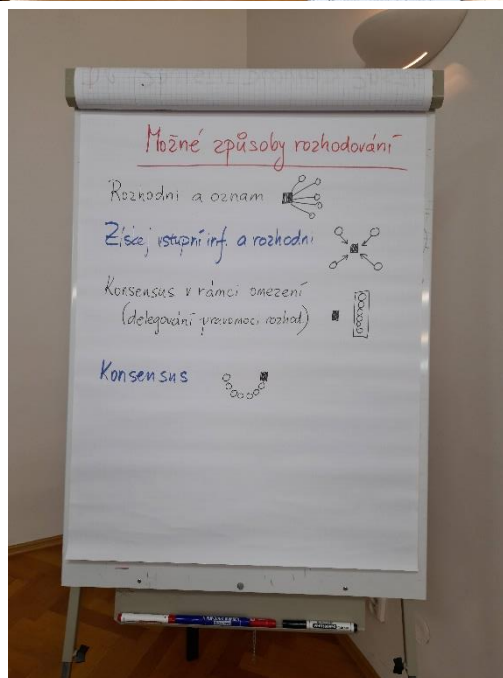 Možné způsoby rozhodování
Rozhodni a oznam
Získej vstupní inf. a rozhodni
Konsensus v rámci omezení
(delegování pravomoci rozhod)
Konsensus